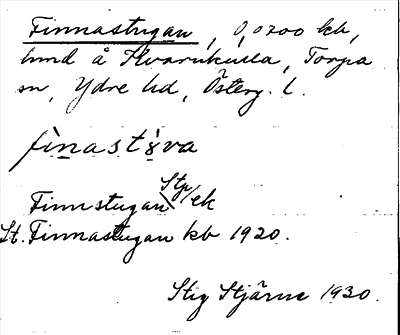 Finnastugan, 0,0200 kb,
hmd å Kvarnkulla, Torpa
sn, Ydre hd, Österg. l.
fìnastɤ̀va
Stp/
Finnstugan ek
St. Finnastugan kb 1920.
Stig Stjärne 1930.